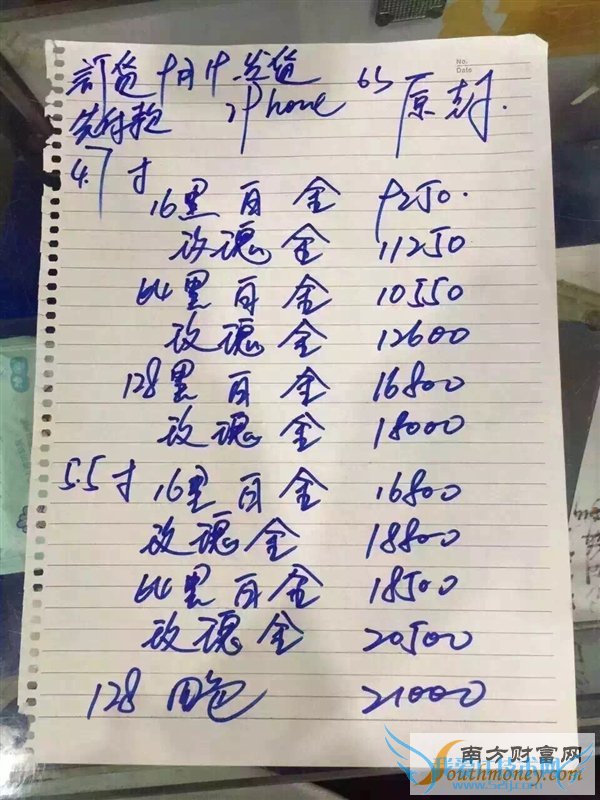 訂货 发货
先付款 iPhone 6S 原封.
4.7寸
16黑白金 9250.
玫瑰金 11250
64黑白金 10550
玫瑰金 12600
128黑白金 16800
玫瑰金 18000
5.5寸 16黑白金 16800
玫瑰金 18800
64黑白金 18500
玫瑰金 20500
128 四色 21000
No.
Date
南方财富网
outhmoney.com